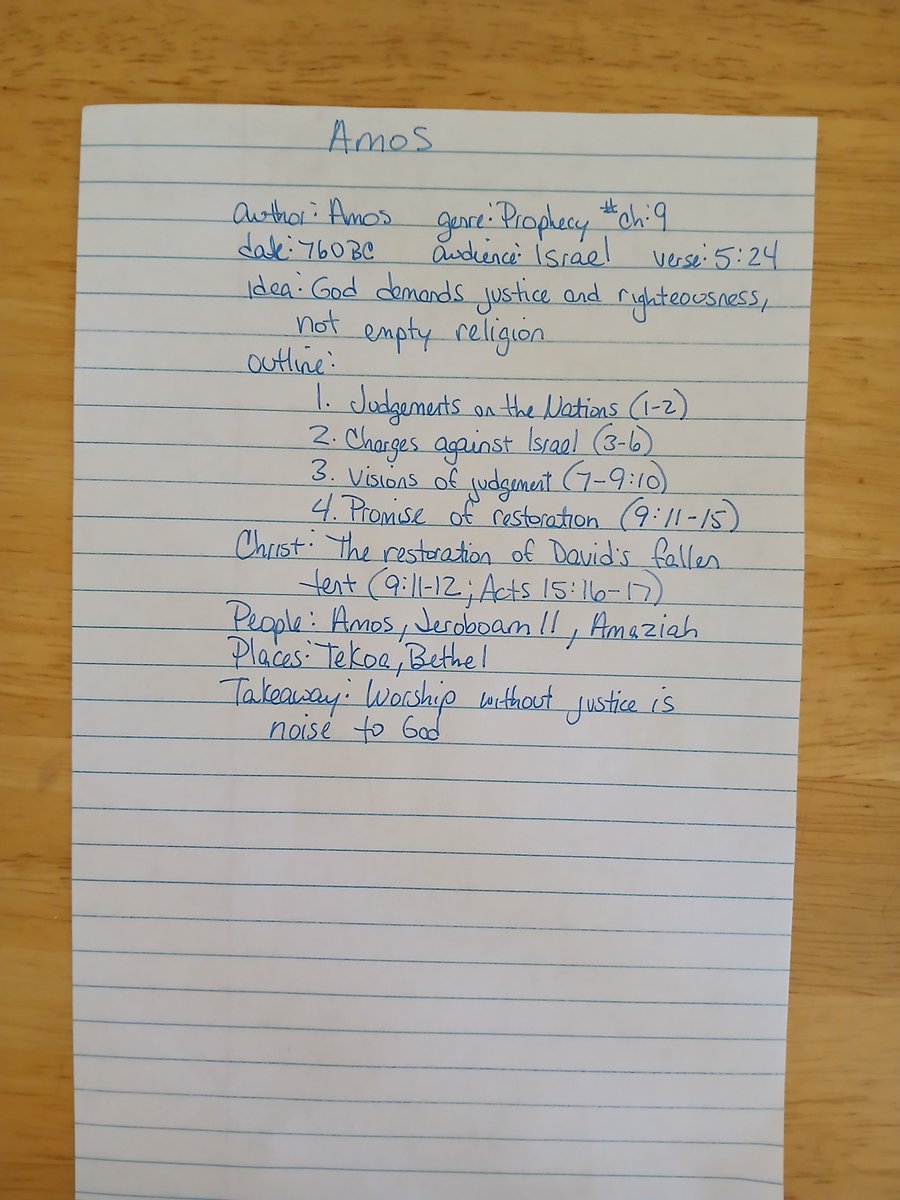 Amos
author: Amos genre: Prophecy #ch: 9
date: 760BC audience: Israel verse: 5:24
idea: God demands justice and righteousness,
not empty religion
outline:
1. Judgements on the Nations (1-2)
2. Charges against Israel (3-6)
3. Visions of judgement (7-9:10)
4. Promise of restoration (9:11-15)
Christ: The restoration of David's fallen
tent (9:11-12; Acts 15:16-17)
People: Amos, Jeroboam II, Amaziah
Places: Tekoa, Bethel
Takeaway: Worship without justice is
noise to God